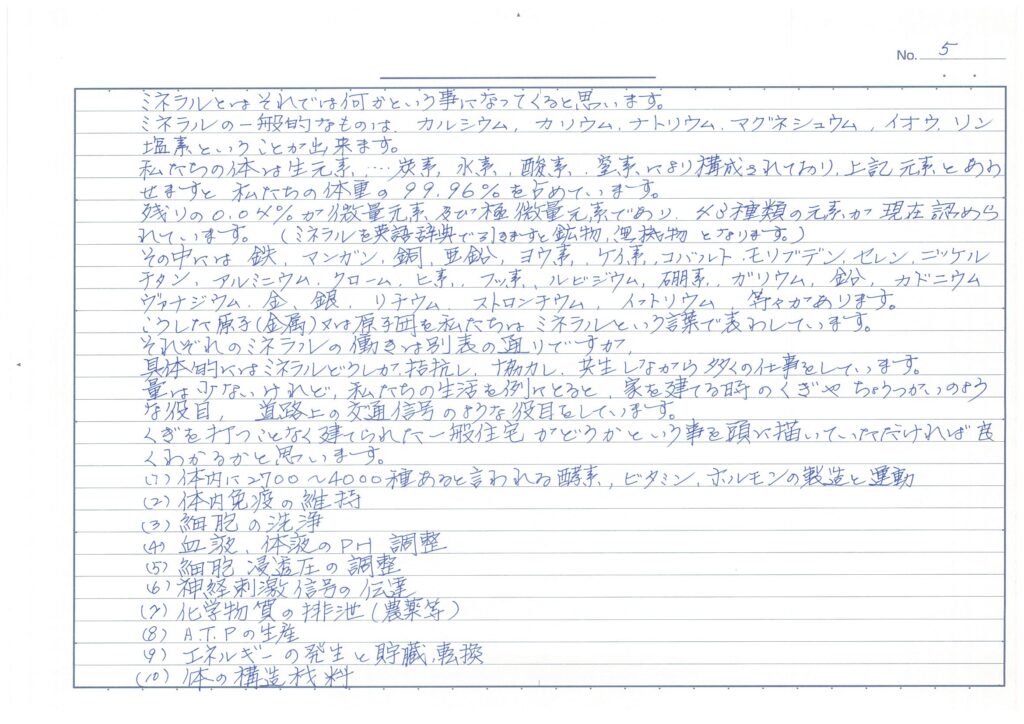 No. 5
ミネラルとはそれでは何かという事になってくると思います。
ミネラルの一般的なものは、カルシウム、カリウム、ナトリウム、マグネシュウム、イオウ、リン
塩素ということが出来ます。
私たちの体は生元素、…炭素、水素、酸素、窒素により構成されており、上記元素とあわ
せますと私たちの体重の99.96%を占めています。
残りの0.04%が微量元素及び極微量元素であり、43種類の元素が現在認めら
れています。(ミネラルを英語辞典で引きますと鉱物、無機物となります。)
その中には鉄、マンガン、銅、亜鉛、ヨウ素、ケイ素、コバルト、モリブデン、セレン、ニッケル
チタン、アルミニウム、クローム、ヒ素、フッ素、ルビジウム、硼素、ガリウム、鉛、カドニウム
ヴァナジウム、金、銀、リチウム、ストロンチウム、イットリウム、等々があります。
こうした原子(金属)又は原子団を私たちはミネラルという言葉で表わしています。
それぞれのミネラルの働きは別表の通りですが、
具体的にはミネラルどうしが拮抗し、協力し、共生しながら多くの仕事をしています。
量は少ないけれど、私たちの生活を例にとると、家を建てる時のくぎやちょうつがいのよう
な役目、道路上の交通信号のような役目をしています。
くぎを打つことなく建てられた一般住宅がどうかという事を頭に描いていただければ良
くわかるかと思います。
(1) 体内に2700~4000種あると言われる酵素、ビタミン、ホルモンの製造と運動
(2) 体内免疫の維持
(3) 細胞の洗浄
(4) 血液、体液のPH調整
(5) 細胞浸透圧の調整
(6) 神経刺激信号の伝達
(7) 化学物質の排泄(農薬等)
(8) A.T.Pの生産
(9) エネルギーの発生と貯蔵、転換
(10) 体の構造材料